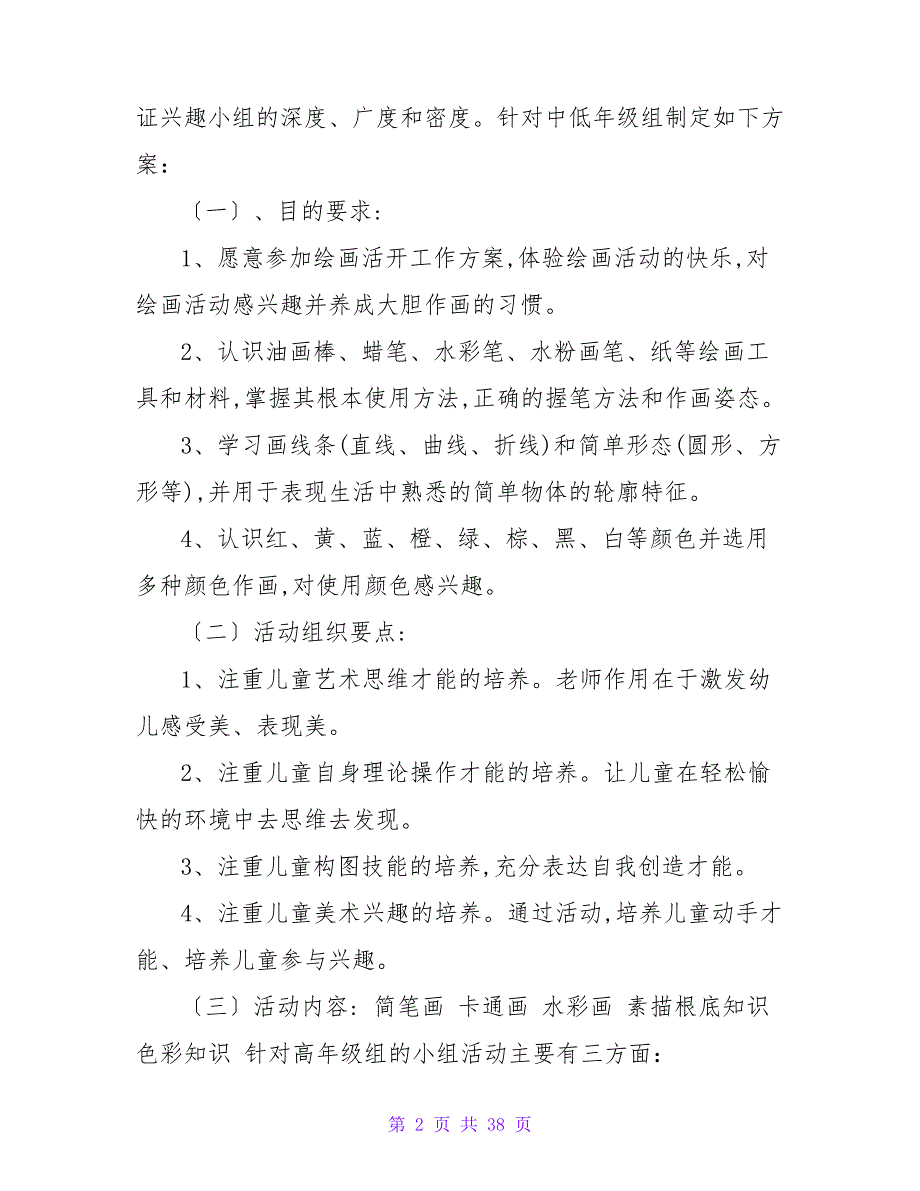 证兴趣小组的深度、广度和密度。针对中低年级组制定如下方
案：
〔一〕、目的要求:
1、愿意参加绘画活开工作方案,体验绘画活动的快乐,对
绘画活动感兴趣并养成大胆作画的习惯。
2、认识油画棒、蜡笔、水彩笔、水粉画笔、纸等绘画工
具和材料,掌握其根本使用方法,正确的握笔方法和作画姿态。
3、学习画线条(直线、曲线、折线)和简单形态(圆形、方
形等),并用于表现生活中熟悉的简单物体的轮廓特征。
4、认识红、黄、蓝、橙、绿、棕、黑、白等颜色并选用
多种颜色作画,对使用颜色感兴趣。
〔二〕活动组织要点:
1、注重儿童艺术思维才能的培养。老师作用在于激发幼
儿感受美、表现美。
2、注重儿童自身理论操作才能的培养。让儿童在轻松愉
快的环境中去思维去发现。
3、注重儿童构图技能的培养,充分表达自我创造才能。
4、注重儿童美术兴趣的培养。通过活动,培养儿童动手才
能、培养儿童参与兴趣。
〔三〕活动内容: 简笔画 卡通画 水彩画 素描根底知识
色彩知识 针对高年级组的小组活动主要有三方面：
第 2 页 共 38 页